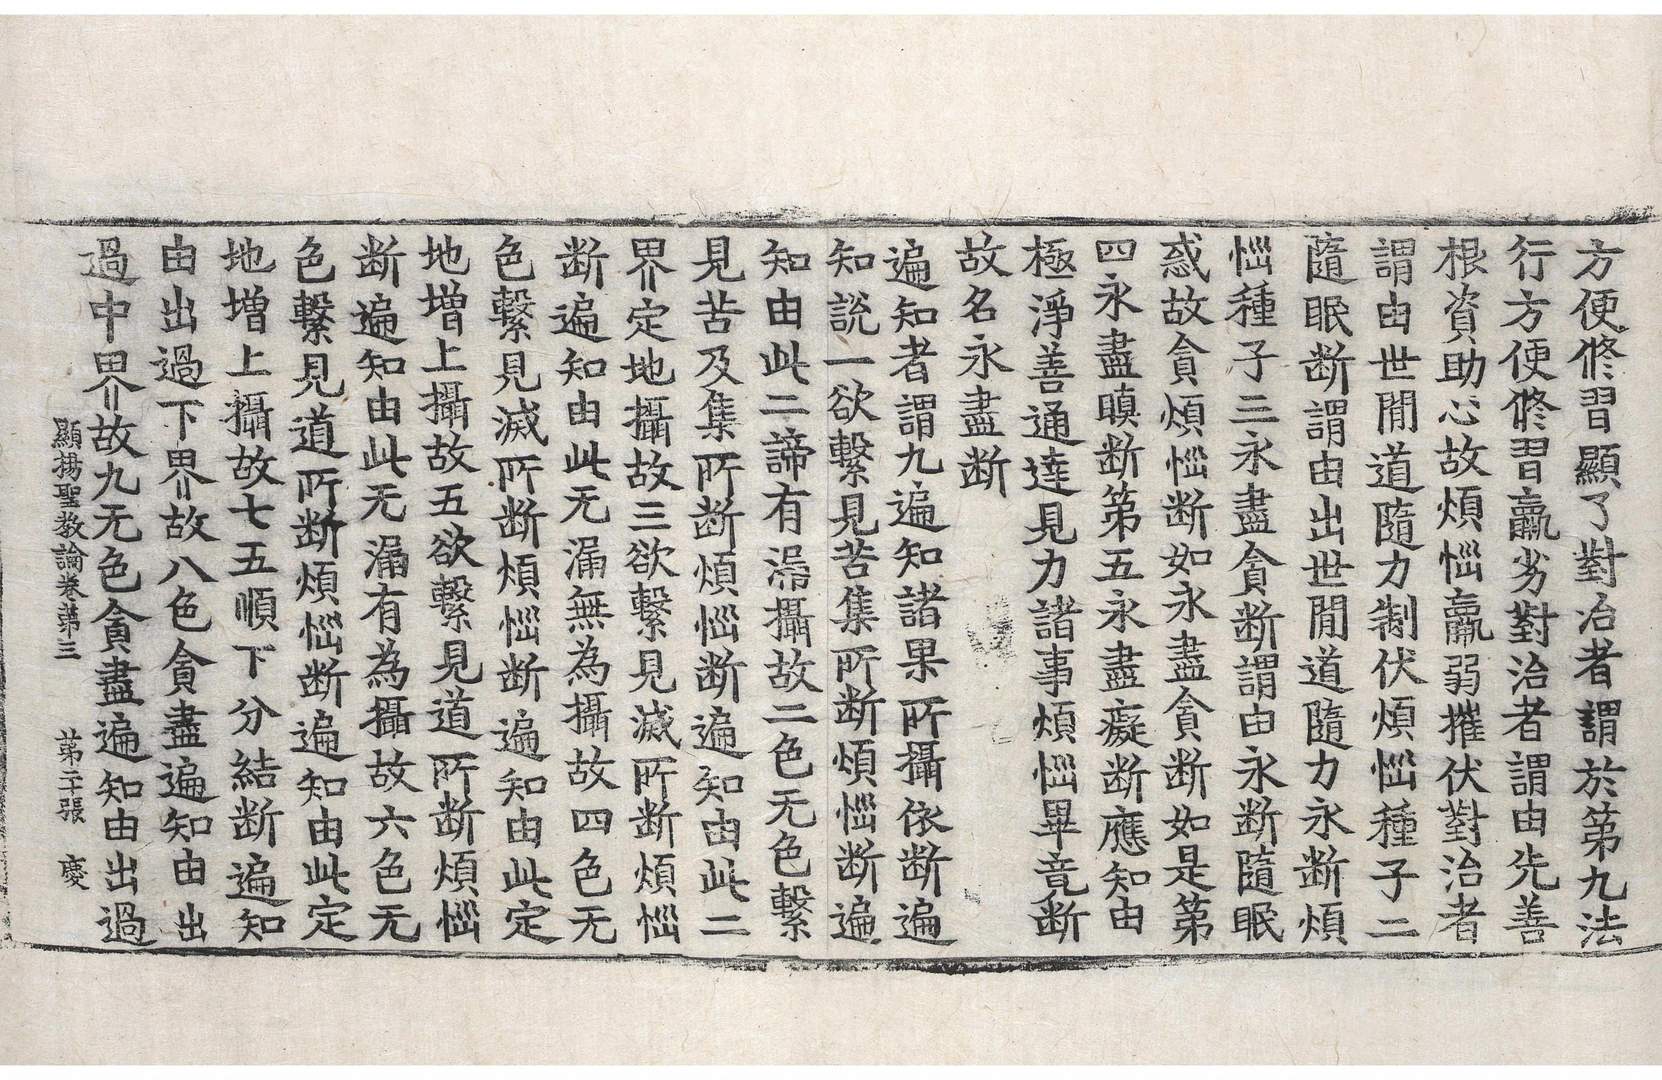 方便修習顯了對治者謂於第九法
行方便修習羸劣對治者謂由先善
根資助心故煩惱羸弱摧伏對治者
謂由世閒道隨力制伏煩惱種子二
隨眠断謂由出世閒道隨力永断煩
惱種子三永盡貪断謂由永断隨眠
惑故貪煩惱断如永盡貪断如是第
四永盡瞋断第五永盡癡断應知由
極淨善通達見力諸事煩惱畢竟断
故名永盡断
遍知者謂九遍知諸果所攝依断遍
知說一欲繫見苦集所断煩惱断遍
知由此二諦有漏攝故二色无色繫
見苦及集所断煩惱断遍知由此二
界定地攝故三欲繫見滅所断煩惱
断遍知由此无漏無為攝故四色无
色繫見滅所断煩惱断遍知由此定
地增上攝故五欲繫見道所断煩惱
断遍知由此无漏有為攝故六色无
色繫見道所断煩惱断遍知由此定
地增上攝故七五順下分結断遍知
由出過下界故八色貪盡遍知由出
過中界故九无色貪盡遍知由出過
顯揚聖教論卷第三 第二十張 慶